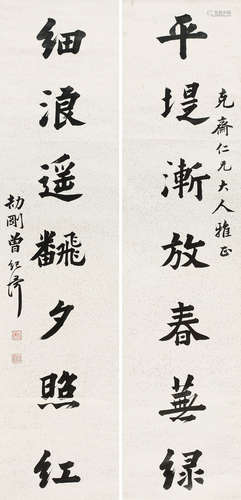 克齋仁兄大人雅正
平堤漸放春蕪绿
細浪遥飜夕照紅
劼剛曾纪泽